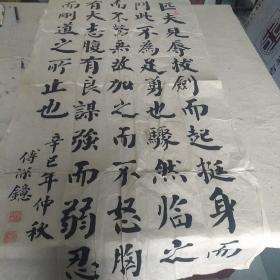 匹夫見辱拔劍而起挺身而
鬥此不為足勇也驟然临之
而不驚無故加之而不怒胸
有大志腹有良謀強而弱忍
而剛道之所止也
辛巳年仲秋
傅